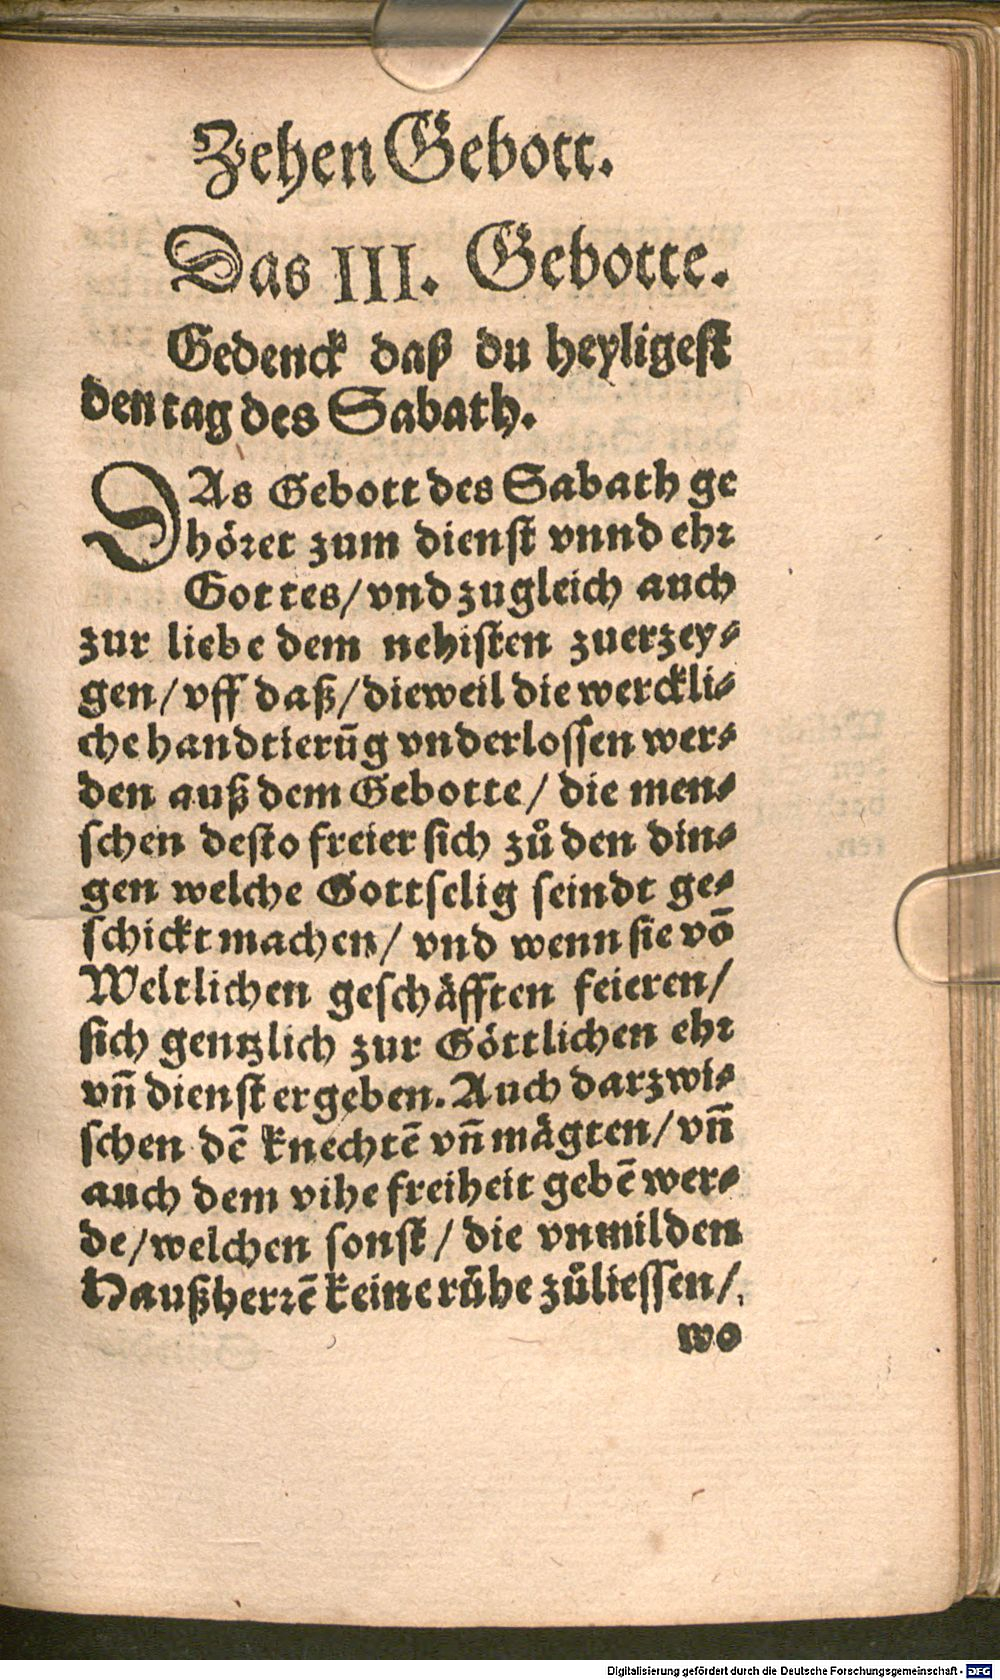 Zehen Gebott.
Das III. Gebotte.
Gedenck daß du heyligest
den tag des Sabath.
DAs Gebott des Sabath ge
höret zum dienst vnnd ehr
Gottes/ vnd zugleich auch
zur liebe dem nehisten zuerzey⸗
gen/ vff daß/ dieweil die werckli⸗
che handtierūg vnderlossen wer⸗
den auß dem Gebotte/ die men⸗
schen desto freier sich zů den din⸗
gen welche Gottselig seindt ge⸗
schickt machen/ vnd wenn sie vō
Weltlichen geschäfften feieren/
sich gentzlich zur Göttlichen ehr
vn̄ dienst ergeben. Auch darzwi⸗
schen dē knechtē vn̄ mägten/ vn̄
auch dem vihe freiheit gebē wer⸗
de/ welchen sonst/ die vnmilden
Haußherrē keine růhe zůliessen/
wo
Digitalisierung gefördert durch die Deutsche Forschungsgemeinschaft - DFG